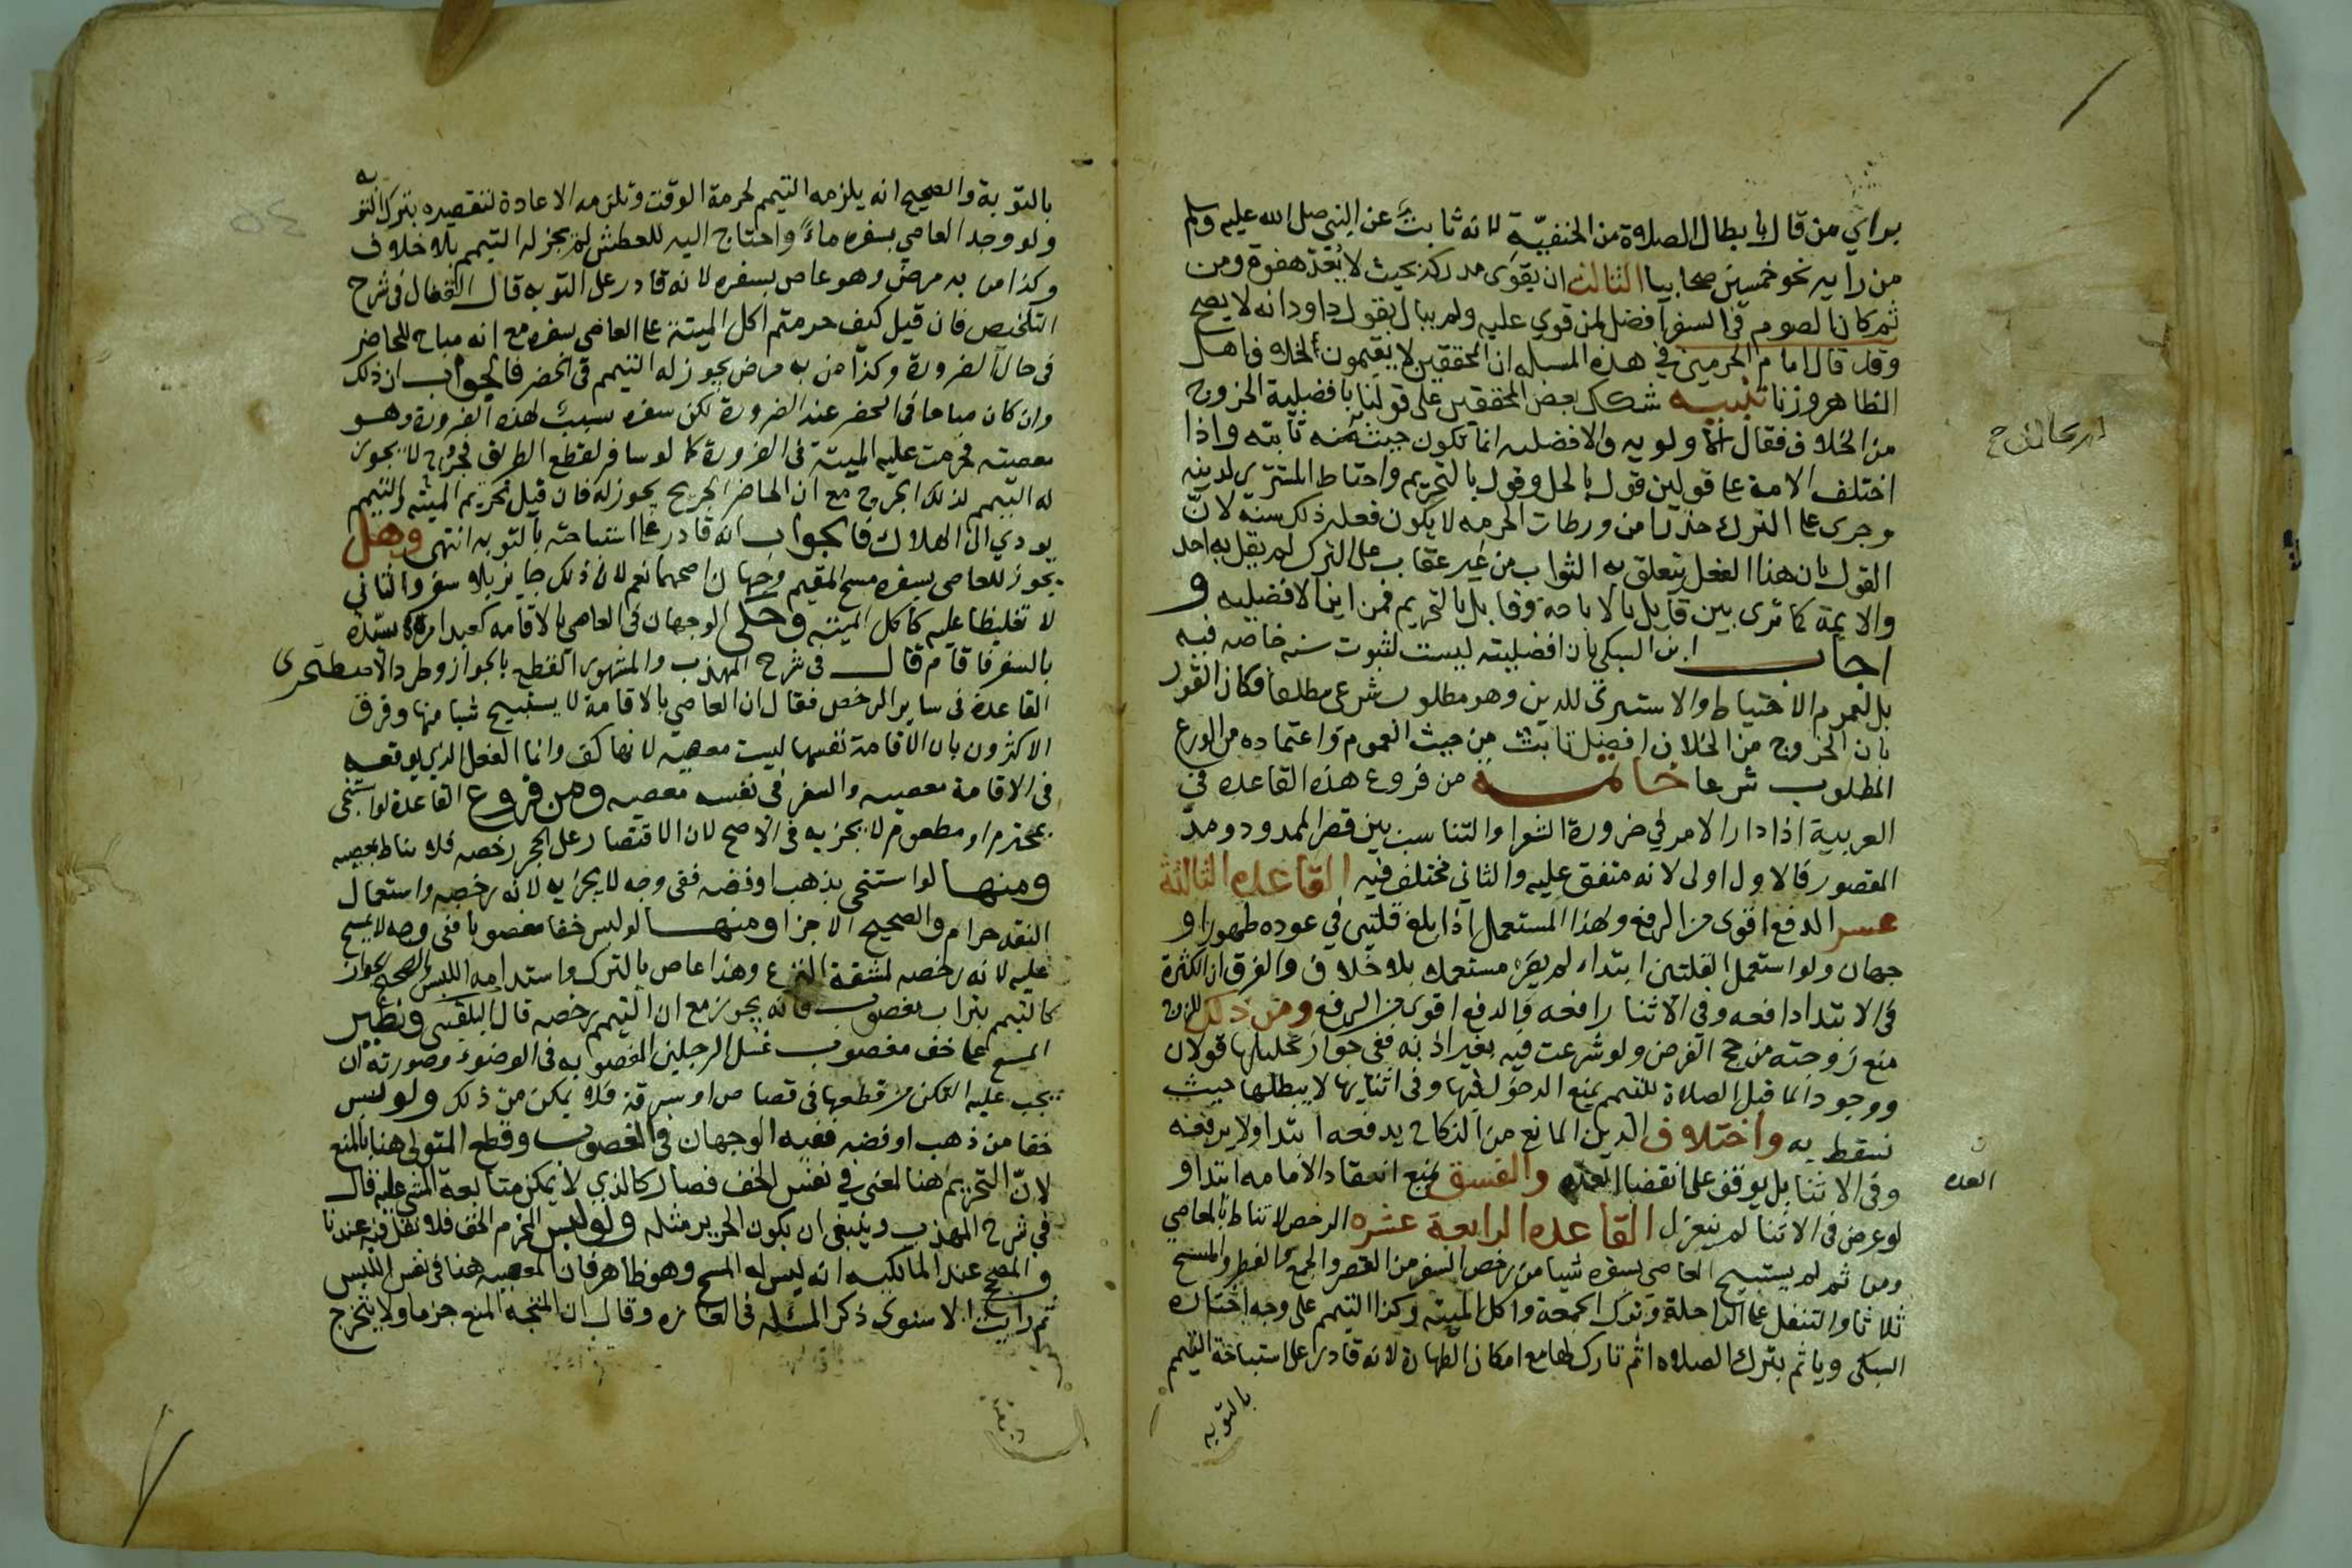 براي من قال بابطال الصلاة من الحنفية لانه ثابت عن النبي صلى الله عليه وسلم
من رايه نحو خمسين صحابيا الثالث ان يقوى مدركه بحيث لا يُعدّ هفوة ومن
ثم كان الصوم في السفر افضل لمن قوي عليه ولم يبال بقول داود انه لا يصح
وقد قال امام الحرمين في هذه المسله ان المحققين لا يقيمون لخلاف اهل
الظاهر وزنا تنبيه شكك بعض المحققين على قولنا بافضلية الخروج
من الخلاف فقال الاولويه والافضليه انما تكون حيث سنه ثابته واذا
اختلف الامة على قولين قول بالحل وقول بالتحريم واحتاط المستبري لدينه
وجرى على الترك حذرا من ورطات الحرمه لا يكون فعله ذلك سنه لان
القول بان هذا الفعل يتعلق به الثواب من غير عقاب على الترك لم يقل به احد
والايمة كما ترى بين قايل بالاباحة وقايل بالتحريم فمن اين الافضليه و
اجاب ابن السبكي بان افضليته ليست لثبوت سنه خاصه فيه
بل لعموم الاحتياط والاستبرى للدين وهو مطلوب شرعي مطلقا فكان القول
بان الخروج من الخلاف افضل ثابت من حيث العموم واعتماده من الورع
المطلوب شرعا خاتمـــة من فروع هذه القاعده في
العربية اذا دار الامر في ضرورة الشعر او التناسب بين قصر الممدود ومد
المقصور فالاول اولى لانه متفق عليه والثاني مختلف فيه القاعده الثالثة
عسر الدفع اقوى من الرفع ولهذا المستعمل اذا بلغ قلتين في عوده طهورا و
جهان ولو استعمل القلتين ابتداء لم يصر مستعملا بلا خلاف والفرق ان الكثرة
في الابتدا دافعه وفي الاثنا رافعه والدفع اقوى من الرفع ومن ذلك للزوج
منع زوجته من حج الفرض ولو شرعت فيه بغير اذنه ففي جواز تحليلها قولان
ووجود الما قبل الصلاة للمتيمم يمنع الدخول فيها وفي اثنايها لا يبطلها حيث
تسقط به واختلاف الدين المانع من النكاح يدفعه ابتدا ولا يرفعه
وفي الاثنا بل يوقف على انقضا العده والفسق يمنع انعقاد الامامه ابتدا و
العده
لو عرض في الاثنا لم ينعزل القاعده الرابعة عشره الرخص لا تناط بالمعاصي
ومن ثم لم يستبيح العاصي بسفره شيا من رخص السفر من القصر والجمع والفطر والمسح
ثلاثا والتنفل على الراحلة وترك الجمعة واكل الميته وكذا التيمم على وجه اختاره
السبكي وياثم بترك الصلاه اثم تارك لها مع امكان الطهارة لانه قادر على استباحة التيمم
بالتوبه
بالتوبة والصحيح انه يلزمه التيمم لحرمة الوقت وتلزمه الاعادة لتقصيره بترك التوبه
ولو وجد العاصي بسفره ماء واحتاج اليه للعطش لم يجز له التيمم بلا خلاف
وكذا من به مرض وهو عاص بسفره لانه قادر على التوبه قال القفال في شرح
التلخيص فان قيل كيف حرمتم اكل الميتة على العاصي بسفره مع انه مباح للحاضر
في حال الضرورة وكذا من به مرض يجوز له التيمم في الحضر فالجواب ان ذلك
وان كان مباحا في الحضر عند الضرورة لكن سفره سبب لهذه الضرورة وهو
معصيته فحرمت عليه الميتة في الضرورة كما لو سافر لقطع الطريق فجرح لا يجوز
له التيمم لذلك الجرح مع ان الحاضر الجريح يجوز له فان قيل تحريم الميته والتيمم
يودي الى الهلاك فالجواب انه قادر على استباحته بالتوبه انتهى وهل
يجوز للعاصي بسفره مسح المقيم وجهان اصحهما نعم لان ذلك جايز بلا سفر والثاني
لا تغليظا عليه كاكل الميتة وحكى الوجهان في العاصي بالاقامه كعبد امره سيده
بالسفر فاقام قال في شرح المهذب والمشهور القطع بالجواز وطرد الاصطخرى
القاعدة في ساير الرخص فقال ان العاصي بالاقامة لا يستبيح شيا منها وفرق
الاكثرون بان الاقامة نفسها ليست معصيه لانها كف وانما الفعل الذي يوقعه
في الاقامة معصيه والسفر في نفسه معصيه ومن فروع القاعدة لو استنجى
بمحترم او مطعوم لا يجزيه في الاصح لان الاقتصار على الحجر رخصه فلا تناط بمعصيه
ومنها لو استنجى بذهب او فضه ففي وجه لا يجزيه لانه رخصه واستعمال
النقد حرام والصحيح الاجزا ومنها لو لبس خفا مغصوبا ففي وجه لا يمسح
عليه لانه رخصه لمشقة النزع وهذا عاص بالترك واستدامه اللبس والصحيح الجواز
كالتيمم بتراب مغصوب فانه يجوز مع ان التيمم رخصه قال البلقيني ونظير
المسح على خف مغصوب غسل الرجلين المغصوبه في الوضوء وصورته ان
يجب عليه التمكن من قطعها في قصاص او سرقة فلا يمكن من ذلك ولو لبس
خفا من ذهب او فضه ففيه الوجهان في المغصوب وقطع المتولي هنا بالمنع
لان التحريم هنا لمعنى في نفس الخف فصار كالذي لا يمكن متابعة المشي عليه قال
في شرح المهذب وينبغي ان يكون الحرير مثله ولو لبس المحرم الخف فلا نقل فيه عندنا
والمصحح عند المالكيه انه ليس له المسح وهو ظاهر فان المعصيه هنا في نفس اللبس
ثم رايت الاسنوي ذكر المسئله في الغازه وقال ان المتجه المنع جزما ولا يتخرج